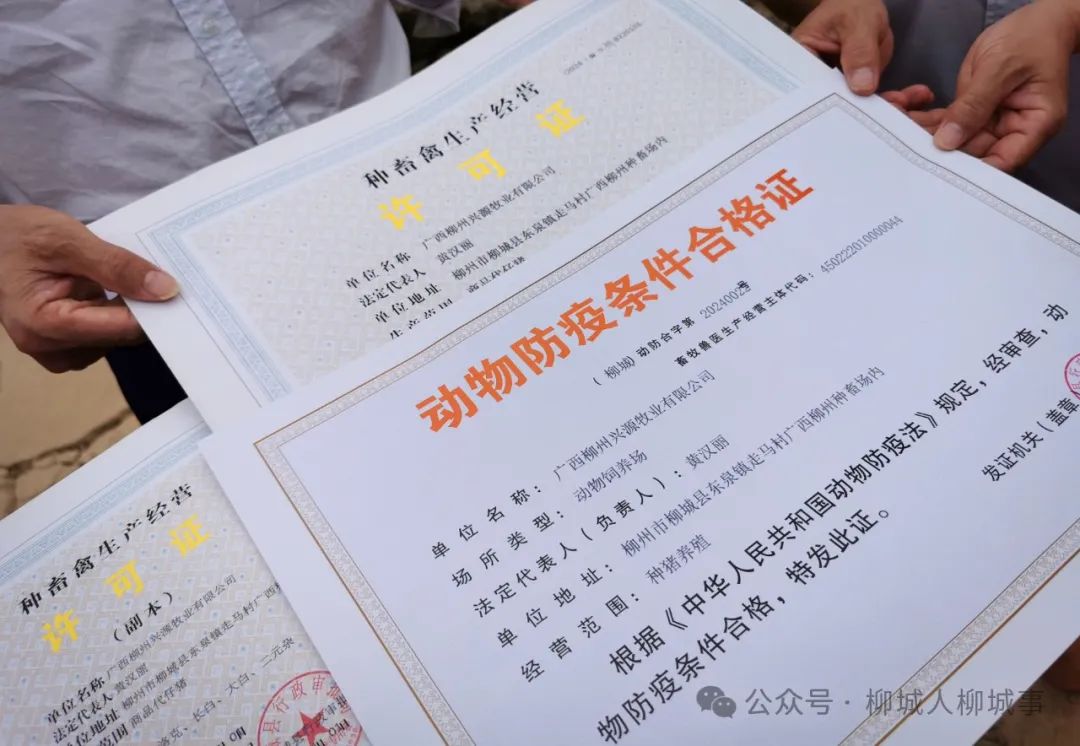 种畜禽生产经营
许可证
单位名称 广西柳州兴源牧业有限公司
法定代表人 黄汉丽
单位地址 柳州市柳城县东泉镇走马村广西柳州种畜场内
动物防疫条件合格证
(柳城)动防合字第 2024002号
畜牧兽医生产经营主体代码:450222010000044
单位名称:广西柳州兴源牧业有限公司
场所类型:动物饲养场
法定代表人(负责人):黄汉丽
单位地址:柳州市柳城县东泉镇走马村广西柳州种畜场内
经营范围:种猪养殖
根据《中华人民共和国动物防疫法》规定,经审查,动
物防疫条件合格,特发此证。
发证机关(盖章
种畜禽生产经营
许可证
(副本)
单位名称 广西柳州兴源牧业有限公司
法定代表人 黄汉丽
单位地址 柳州市柳城县东泉镇走马村广西柳
范围 商品代仔猪
长白、大白、二元杂
县行政审
公众号·柳城人柳城事